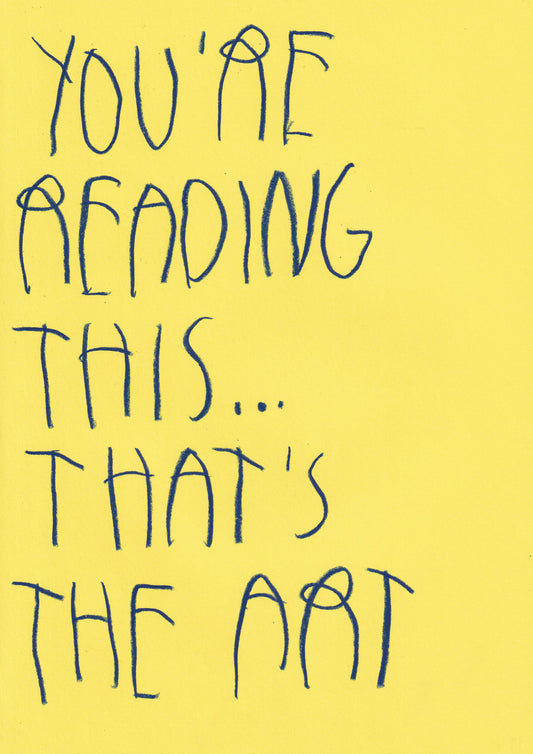 YOU'RE
READING
THIS...
THAT'S
THE ART